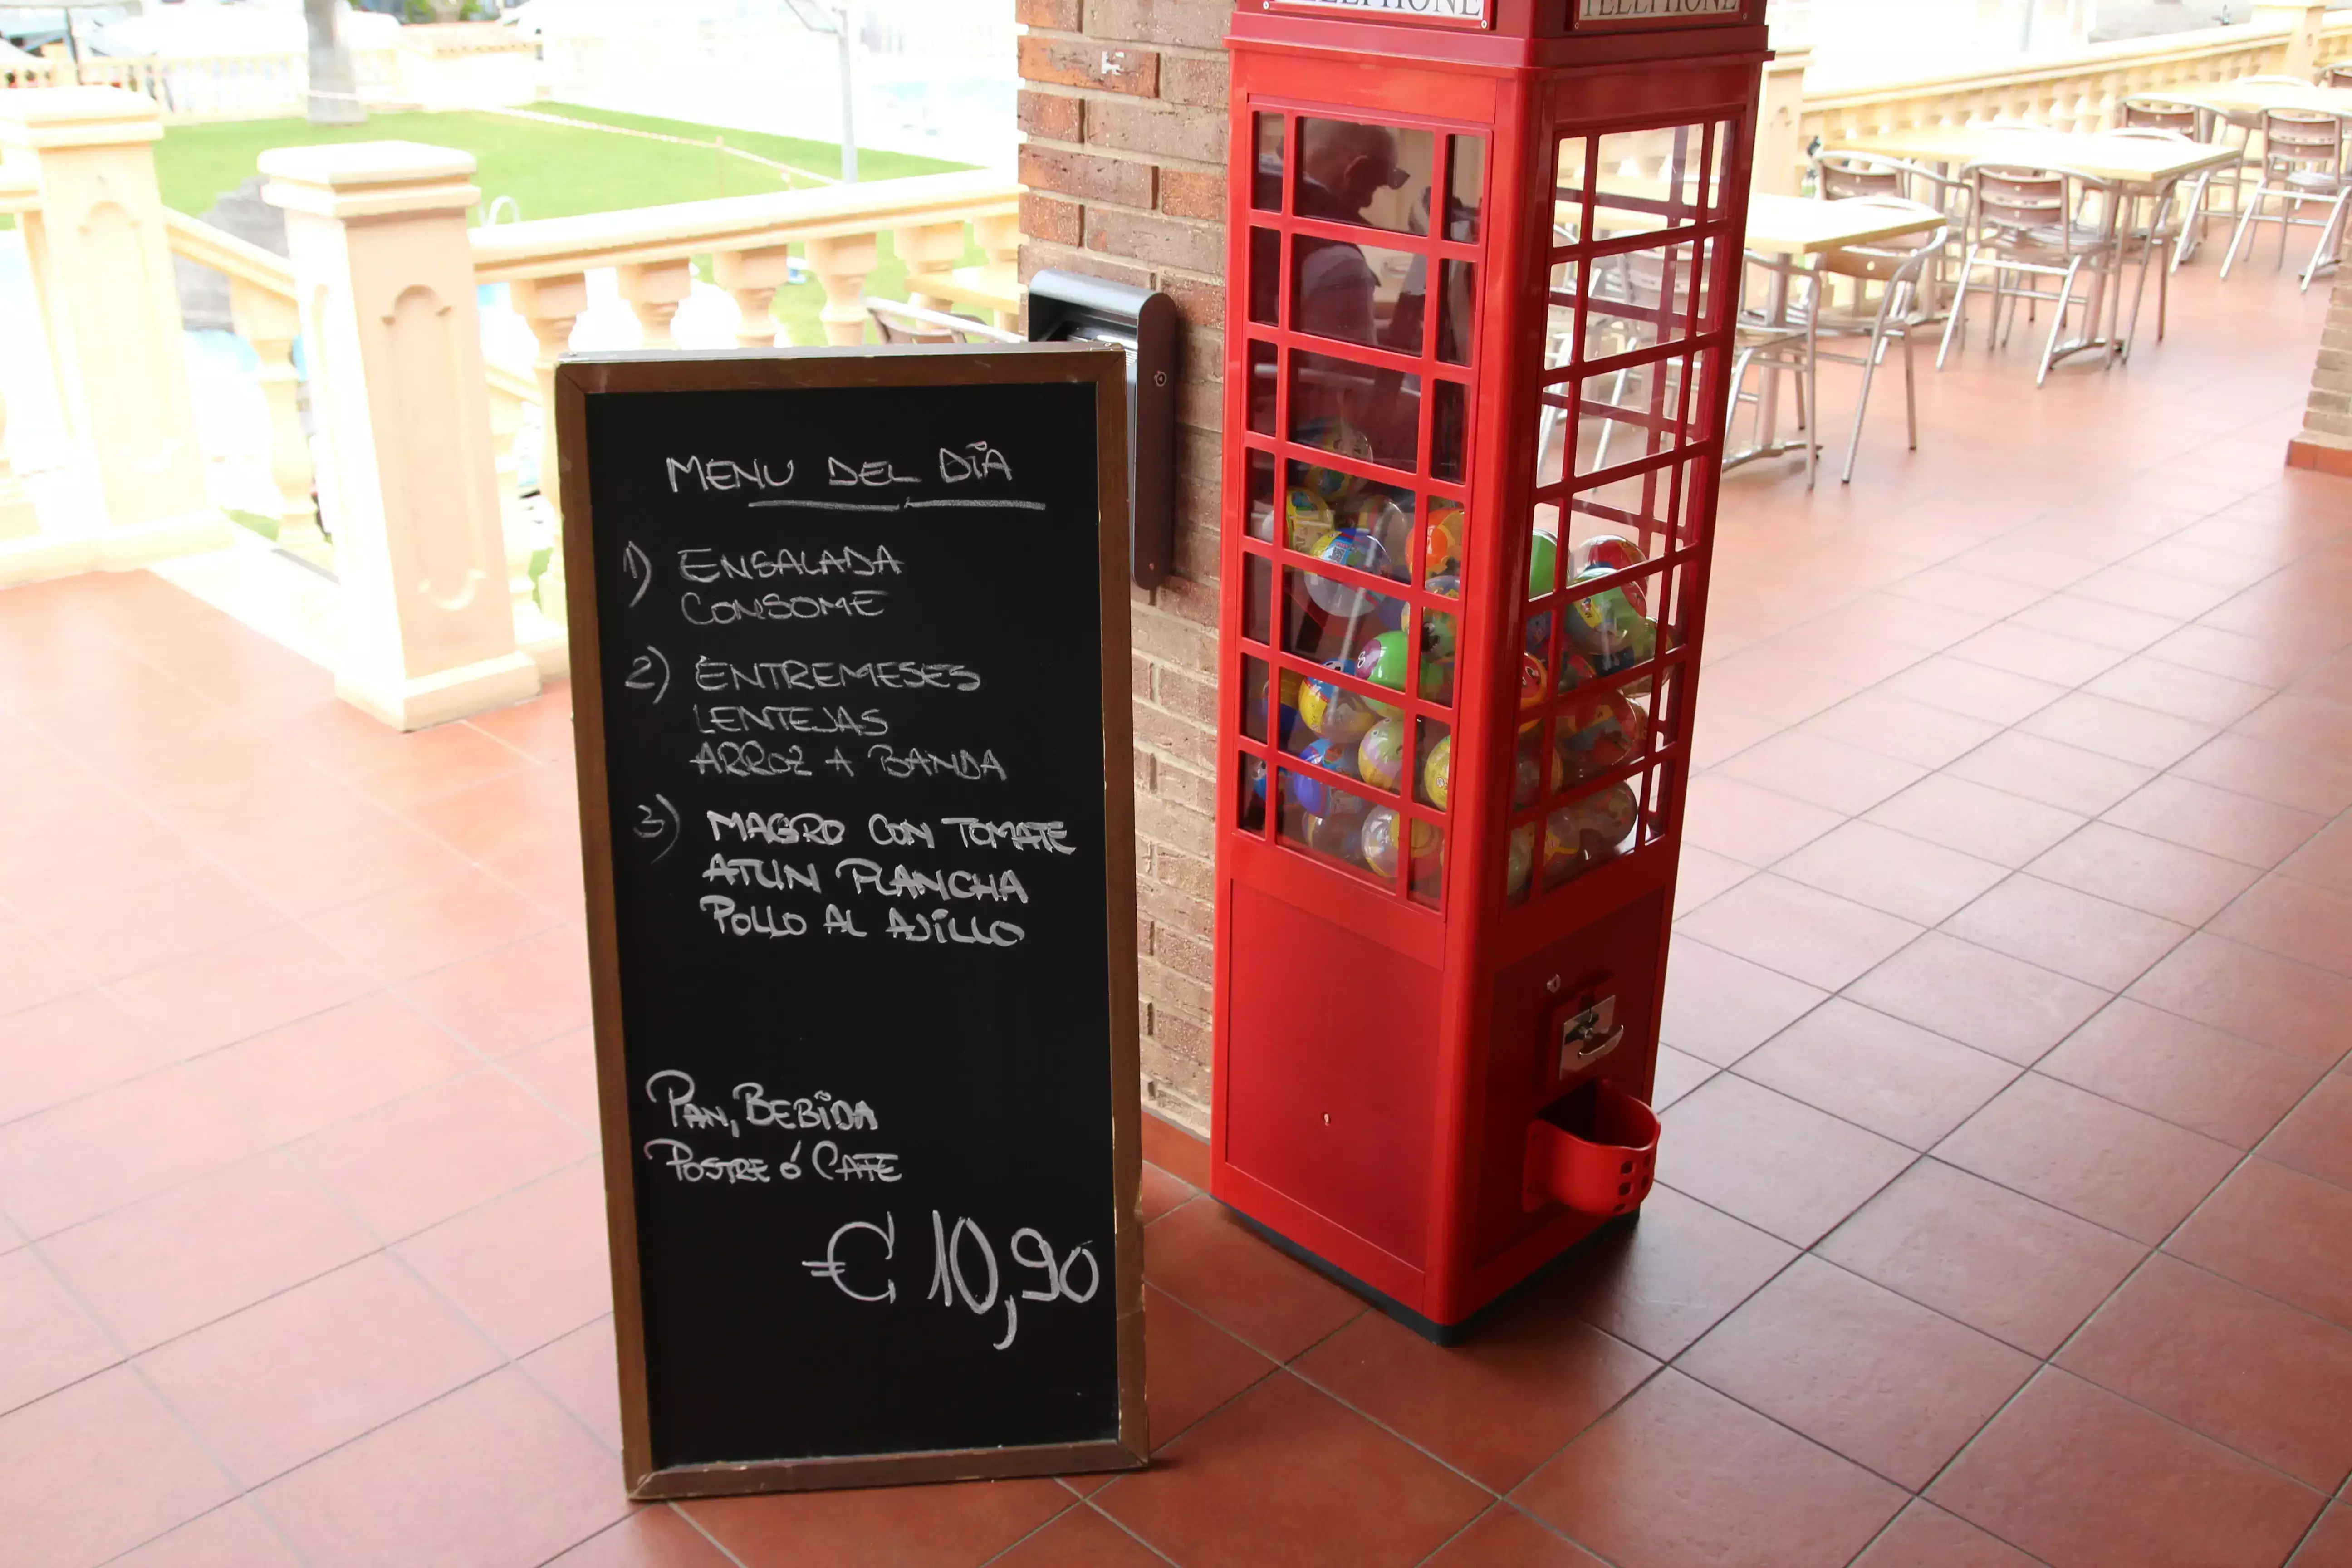 TELEPHONE
TELEPHONE
MENU DEL DIA
1) ENSALADA
CONSOME
2) ENTREMESES
LENTEJAS
ARROZ A BANDA
3) MAGRO CON TOMATE
ATUN PLANCHA
POLLO AL AJILLO
PAN, BEBIDA
POSTRE ó CAFE
€ 10,90